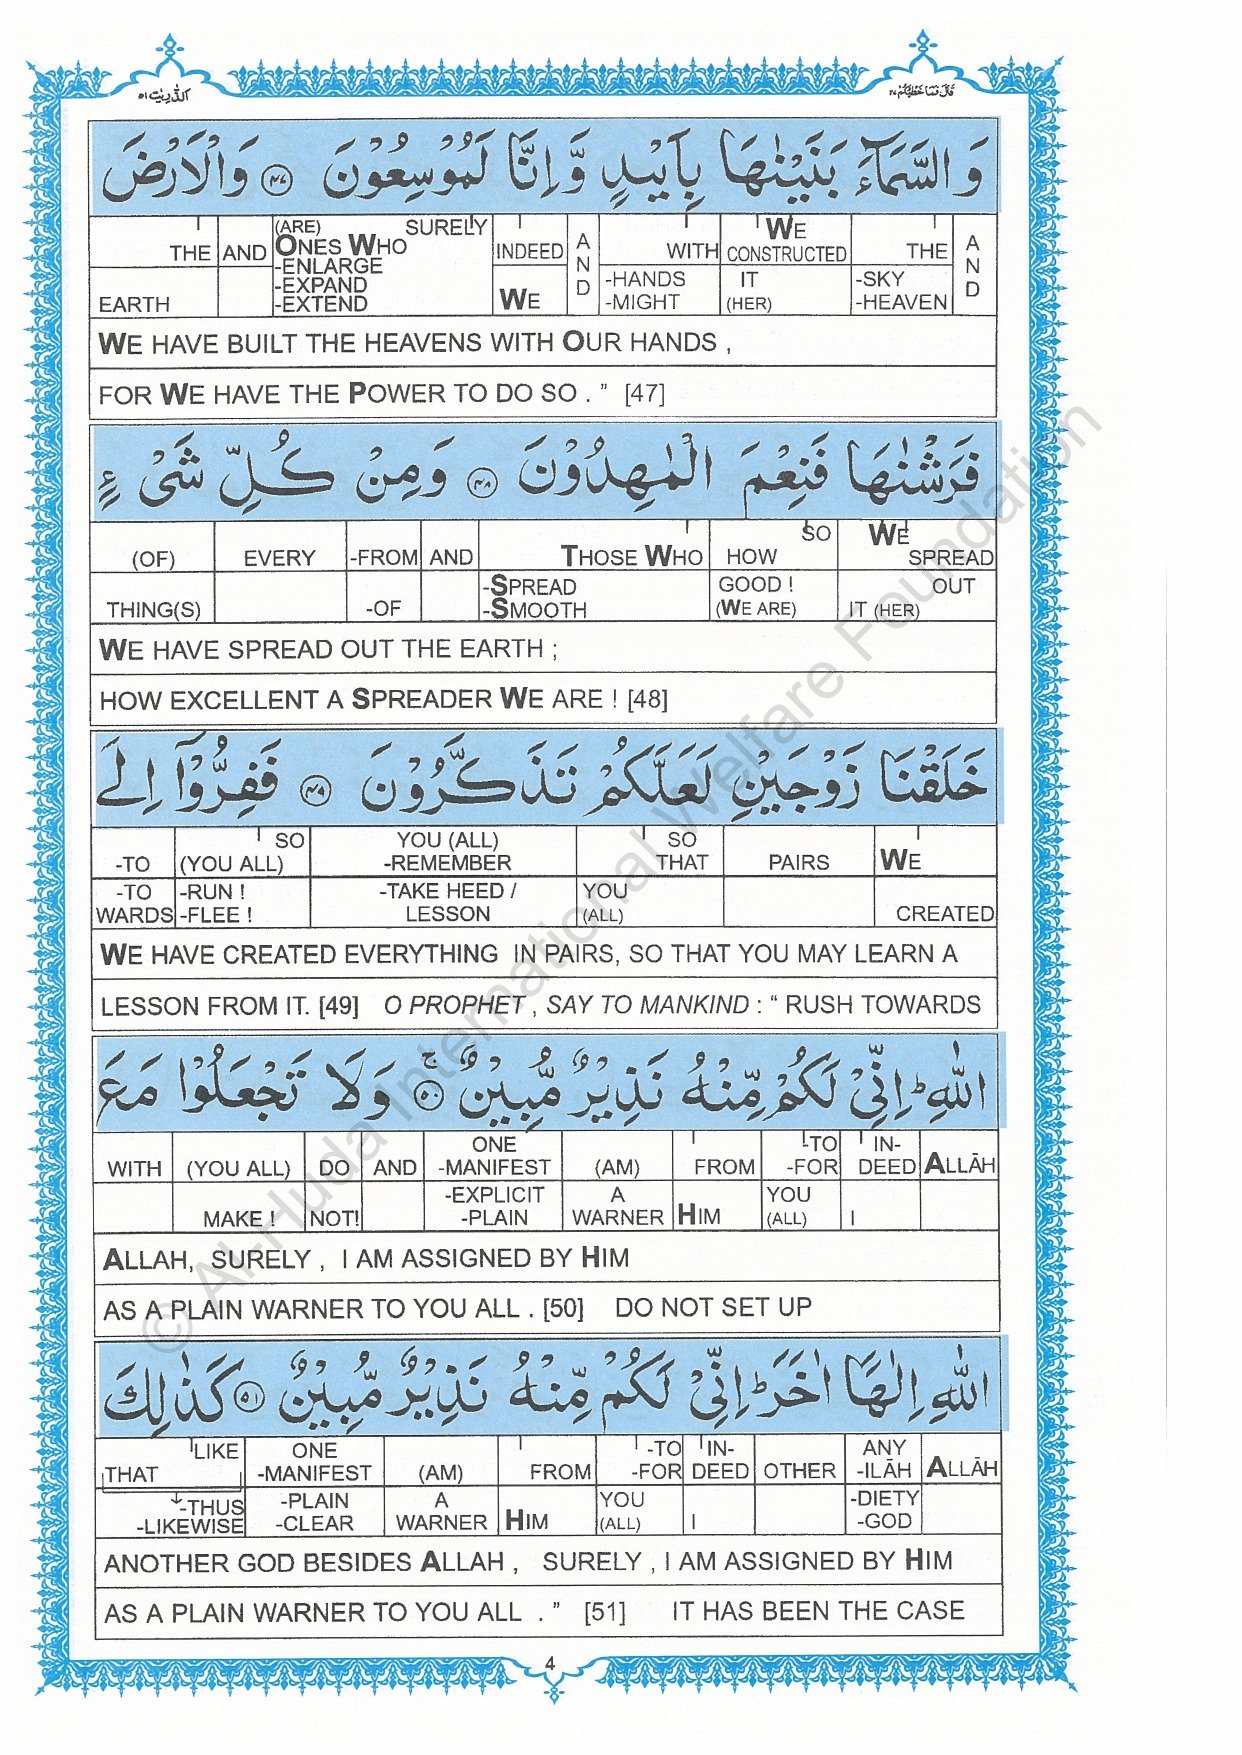 الذّٰريٰت ٥١
قال فما خطبكم ٢٧
وَالسَّمَآءَ بَنَيْنٰهَا بِاَيْىدٍ وَّ اِنَّا لَمُوْسِعُوْنَ ﴿٤٧﴾ وَالْاَرْضَ
THE AND (ARE) SURELY ONES WHO -ENLARGE -EXPAND -EXTEND INDEED AND WITH WE CONSTRUCTED THE AND
EARTH WE -HANDS -MIGHT IT (HER) -SKY -HEAVEN
WE HAVE BUILT THE HEAVENS WITH OUR HANDS ,
FOR WE HAVE THE POWER TO DO SO . ” [47]
فَرَشْنٰهَا فَنِعْمَ الْمٰهِدُوْنَ ﴿٤٨﴾ وَمِنْ كُلِّ شَىْءٍ
(OF) EVERY -FROM AND THOSE WHO SO HOW WE SPREAD
THING(S) -OF -SPREAD -SMOOTH GOOD ! (WE ARE) OUT IT (HER)
WE HAVE SPREAD OUT THE EARTH ;
HOW EXCELLENT A SPREADER WE ARE ! [48]
خَلَقْنَا زَوْجَيْنِ لَعَلَّكُمْ تَذَكَّرُوْنَ ﴿٤٩﴾ فَفِرُّوْٓا اِلَى
-TO SO (YOU ALL) YOU (ALL) -REMEMBER SO THAT PAIRS WE
-TO WARDS -RUN ! -FLEE ! -TAKE HEED / LESSON YOU (ALL) CREATED
WE HAVE CREATED EVERYTHING IN PAIRS, SO THAT YOU MAY LEARN A
LESSON FROM IT. [49] O PROPHET , SAY TO MANKIND : “ RUSH TOWARDS
اللّٰهِ ؕ اِنِّىْ لَكُمْ مِّنْهُ نَذِيْرٌ مُّبِيْنٌ ۚ﴿٥٠﴾ وَلَا تَجْعَلُوْا مَعَ
WITH (YOU ALL) DO AND ONE -MANIFEST (AM) FROM -TO -FOR IN- DEED ALLĀH
MAKE ! NOT! -EXPLICIT -PLAIN A WARNER HIM YOU (ALL) I
ALLAH, SURELY , I AM ASSIGNED BY HIM
AS A PLAIN WARNER TO YOU ALL . [50] DO NOT SET UP
اللّٰهِ اِلٰهًا اٰخَرَ ؕ اِنِّىْ لَكُمْ مِّنْهُ نَذِيْرٌ مُّبِيْنٌ ﴿٥١﴾ كَذٰلِكَ
LIKE THAT ONE -MANIFEST (AM) FROM -TO -FOR IN- DEED OTHER ANY -ILĀH ALLĀH
-THUS -LIKEWISE -PLAIN -CLEAR A WARNER HIM YOU (ALL) I -DIETY -GOD
ANOTHER GOD BESIDES ALLAH , SURELY , I AM ASSIGNED BY HIM
AS A PLAIN WARNER TO YOU ALL . ” [51] IT HAS BEEN THE CASE
4
© Al-Huda International Welfare Foundation